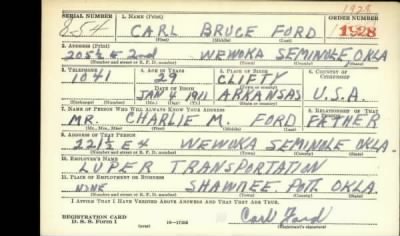 1928
SERIAL NUMBER 1. NAME (Print) ORDER NUMBER
854 CARL BRUCE FORD 1928
(First) (Middle) (Last)
2. ADDRESS (Print)
205½ E 2nd WEWOKA SEMINOLE OKLA
(Number and street or R. F. D. number) (Town) (County) (State)
3. TELEPHONE 4. AGE IN YEARS 5. PLACE OF BIRTH 6. COUNTRY OF CITIZENSHIP
1041 29 CLIFTY
DATE OF BIRTH (Town or county)
JAN 4 1911 ARKANSAS U.S.A.
(Exchange) (Number) (Mo.) (Day) (Yr.) (State or country)
7. NAME OF PERSON WHO WILL ALWAYS KNOW YOUR ADDRESS 8. RELATIONSHIP OF THAT PERSON
MR. CHARLIE M. FORD FATHER
(Mr., Mrs., Miss) (First) (Middle) (Last)
9. ADDRESS OF THAT PERSON
221½ E 4 WEWOKA SEMINOLE OKLA
(Number and street or R. F. D. number) (Town) (County) (State)
10. EMPLOYER'S NAME
LUPER TRANSPORTATION
11. PLACE OF EMPLOYMENT OR BUSINESS
NONE SHAWNEE. POTT. OKLA.
(Number and street or R. F. D. number) (Town) (County) (State)
I AFFIRM THAT I HAVE VERIFIED ABOVE ANSWERS AND THAT THEY ARE TRUE.
REGISTRATION CARD
D. S. S. Form 1 (over) Carl Ford
(Registrant's signature)